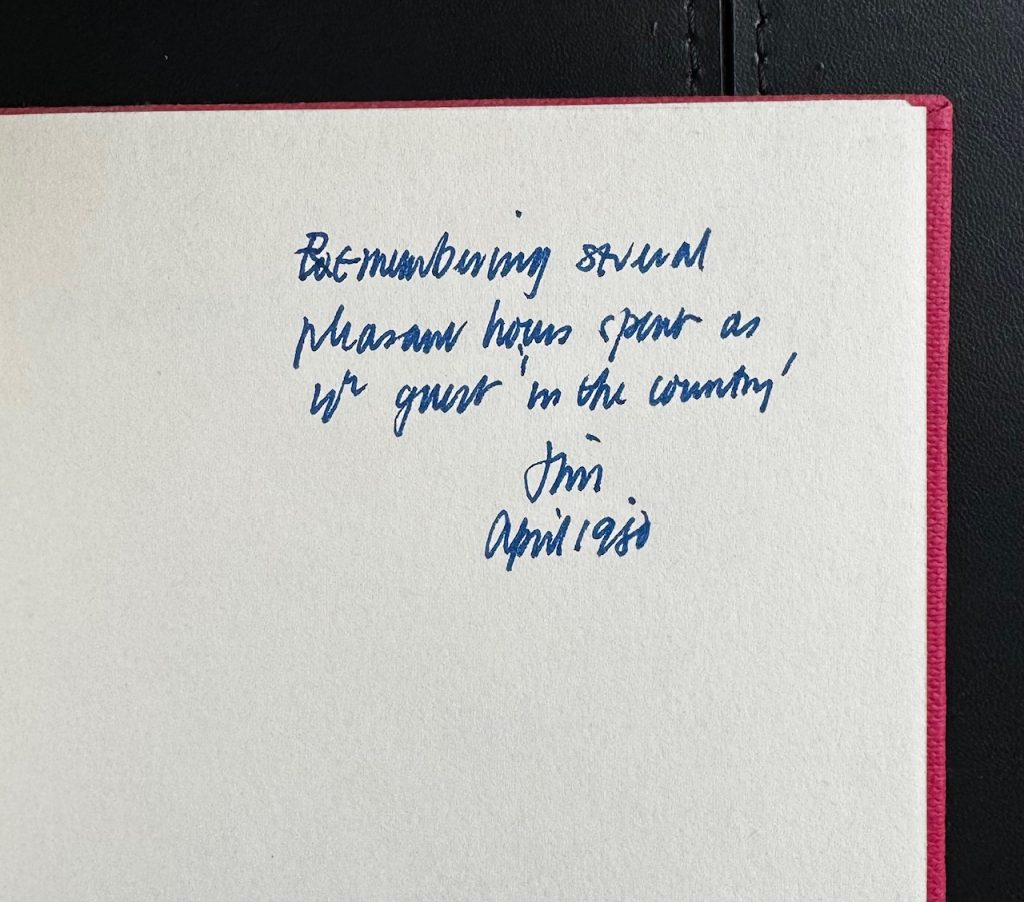 Remembering several
pleasant hours spent as
yr guest 'in the country'
April 1980